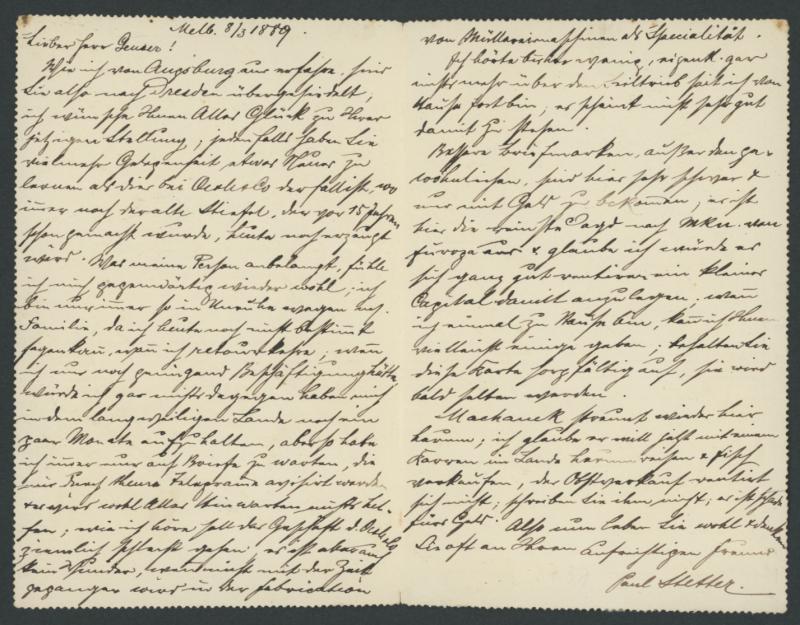 Melb. 8/3 1889.
Lieber Herr Genser!
Wie ich von Augsburg aus erfahre, sind
Sie also nach Dresden übergesiedelt;
ich wünsche Ihnen Alles Glück zu Ihrer
jetzigen Stellung, jedenfalls haben Sie
vielmehr Gelegenheit, etwas Neues zu
lernen als dies bei der Fall ist, wo
immer noch der alte Stiefel, der vor 15 Jahren
schon gemacht wurde, heute noch erzeugt
wird. Was meine Person anbelangt, fühle
ich mich gegenwärtig wieder wohl; ich
bin nur immer so in Unruhe wegen m.
Familie, da ich heute noch nicht bestimmt
sagen kann, wann ich retourkehre; wenn
ich nur noch genügend Beschäftigung hätte,
würde ich gar nichts dagegen haben mich
in dem langweiligen Lande noch ein
paar Monate aufzuhalten, aber so habe
ich immer nur auf Briefe zu warten, die
mir durch Telegramme avisirt werden
& wohl Alles Hinwarten nichts hel-
fen; wie ich höre soll das Geschäft d.
ziemlich schlecht gehen, es ist aber auch
kein Wunder, wenn nicht mit der Zeit
gegangen wird in der Fabrication
von Müllereimaschinen als Specialität.
Ich hörte bisher wenig, eigentl. gar
nichts mehr über den seit ich von
Hause fort bin, es scheint nicht sehr gut
damit zu stehen.
Bessere Briefmarken, außer den ge-
wöhnlichen, sind hier sehr schwer &
nur mit Geld zu bekommen; es ist
hier die reinste Jagd nach Mkn. von
Europa aus & glaube ich würde es
sich ganz gut rentiren ein kleines
Capital damit anzulegen; wenn
ich einmal zu Hause bin, kann ich Ihnen
vielleicht einige geben; behalten Sie
diese Karte sorgfältig auf, sie wird
bald selten werden.
Machanek streunt wieder hier
herum; ich glaube er will jetzt mit einem
Karren im Lande herum reisen & Fisch
verkaufen, der Obstverkauf rentirt
sich nicht; schreiben Sie ihm nicht; es ist schade
fürs Geld. Also nun leben Sie wohl & denken
Sie oft an Ihren aufrichtigen Freund
Paul Stetter.